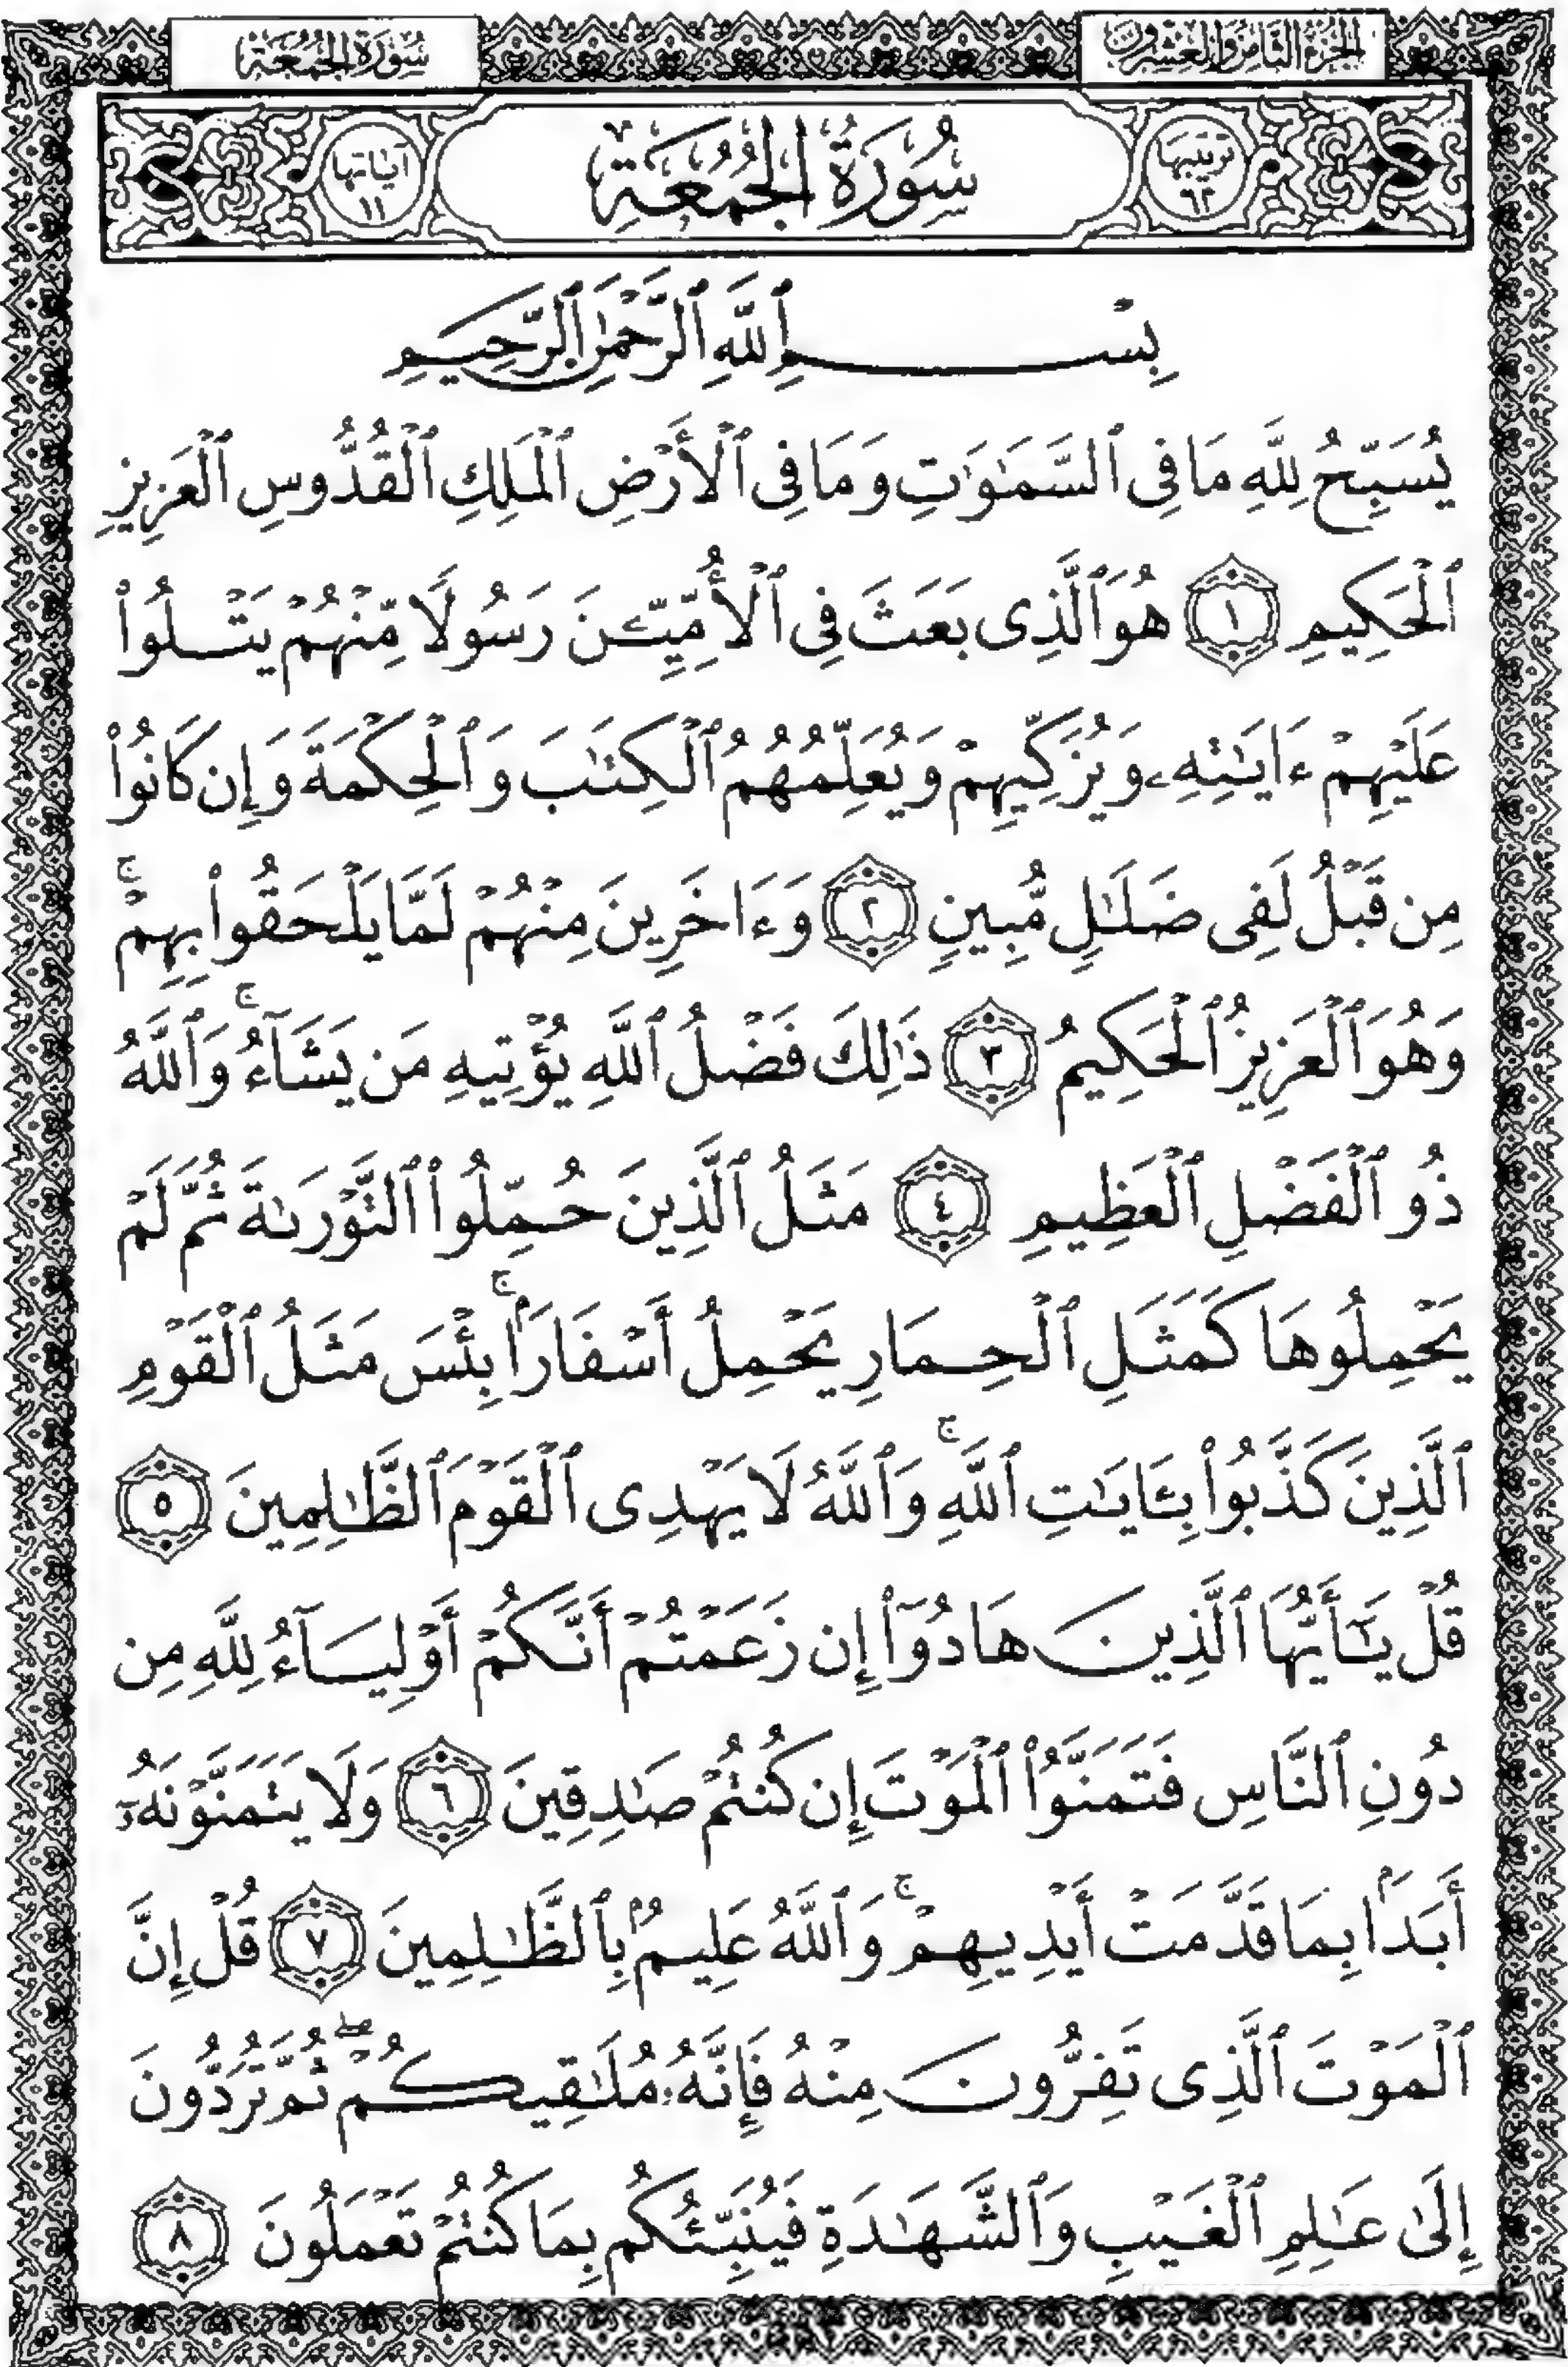 الجزء الثامن والعشرون
سورة الجمعة
ترتيبها ٦٢
سُورَةُ الجُمُعَةِ
آياتها ١١
بِسْمِ ٱللَّهِ ٱلرَّحْمَٰنِ ٱلرَّحِيمِ
يُسَبِّحُ لِلَّهِ مَا فِى ٱلسَّمَٰوَٰتِ وَمَا فِى ٱلْأَرْضِ ٱلْمَلِكِ ٱلْقُدُّوسِ ٱلْعَزِيزِ
ٱلْحَكِيمِ ١ هُوَ ٱلَّذِى بَعَثَ فِى ٱلْأُمِّيِّـۧنَ رَسُولًا مِّنْهُمْ يَتْلُوا۟
عَلَيْهِمْ ءَايَٰتِهِۦ وَيُزَكِّيهِمْ وَيُعَلِّمُهُمُ ٱلْكِتَٰبَ وَٱلْحِكْمَةَ وَإِن كَانُوا۟
مِن قَبْلُ لَفِى ضَلَٰلٍ مُّبِينٍ ٢ وَءَاخَرِينَ مِنْهُمْ لَمَّا يَلْحَقُوا۟ بِهِمْ ۚ
وَهُوَ ٱلْعَزِيزُ ٱلْحَكِيمُ ٣ ذَٰلِكَ فَضْلُ ٱللَّهِ يُؤْتِيهِ مَن يَشَآءُ ۚ وَٱللَّهُ
ذُو ٱلْفَضْلِ ٱلْعَظِيمِ ٤ مَثَلُ ٱلَّذِينَ حُمِّلُوا۟ ٱلتَّوْرَىٰةَ ثُمَّ لَمْ
يَحْمِلُوهَا كَمَثَلِ ٱلْحِمَارِ يَحْمِلُ أَسْفَارًۢا ۚ بِئْسَ مَثَلُ ٱلْقَوْمِ
ٱلَّذِينَ كَذَّبُوا۟ بِـَٔايَٰتِ ٱللَّهِ ۚ وَٱللَّهُ لَا يَهْدِى ٱلْقَوْمَ ٱلظَّٰلِمِينَ ٥
قُلْ يَٰٓأَيُّهَا ٱلَّذِينَ هَادُوٓا۟ إِن زَعَمْتُمْ أَنَّكُمْ أَوْلِيَآءُ لِلَّهِ مِن
دُونِ ٱلنَّاسِ فَتَمَنَّوُا۟ ٱلْمَوْتَ إِن كُنتُمْ صَٰدِقِينَ ٦ وَلَا يَتَمَنَّوْنَهُۥٓ
أَبَدًۢا بِمَا قَدَّمَتْ أَيْدِيهِمْ ۚ وَٱللَّهُ عَلِيمٌۢ بِٱلظَّٰلِمِينَ ٧ قُلْ إِنَّ
ٱلْمَوْتَ ٱلَّذِى تَفِرُّونَ مِنْهُ فَإِنَّهُۥ مُلَٰقِيكُمْ ۖ ثُمَّ تُرَدُّونَ
إِلَىٰ عَٰلِمِ ٱلْغَيْبِ وَٱلشَّهَٰدَةِ فَيُنَبِّئُكُم بِمَا كُنتُمْ تَعْمَلُونَ ٨